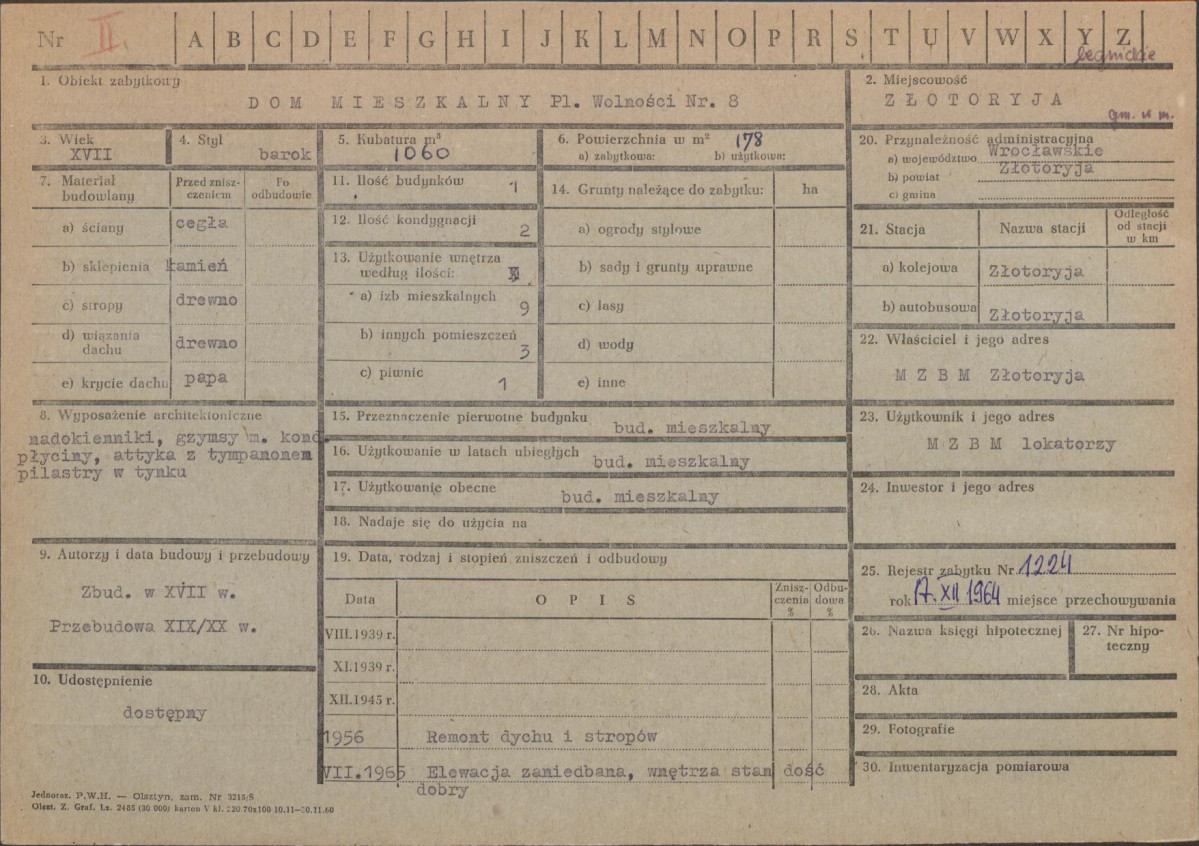 Nr II. A B C D E F G H I J K L M N O P R S T U V W X Y Z
legnickie
1. Obiekt zabytkowy
DOM MIESZKALNY Pl. Wolności Nr. 8
2. Miejscowość
ZŁOTORYJA
gm. w m.
3. Wiek
XVII
4. Styl
barok
5. Kubatura m³
1060
6. Powierzchnia w m² 178
a) zabytkowa: b) użytkowa:
20. Przynależność administracyjna
a) województwo Wrocławskie
b) powiat Złotoryja
c) gmina
7. Materiał budowlany
Przed zniszczeniem
Po odbudowie
a) ściany cegła
b) sklepienia kamień
c) stropy drewno
d) wiązania dachu drewno
e) krycie dachu papa
11. Ilość budynków 1
12. Ilość kondygnacji 2
13. Użytkowanie wnętrza
według ilości:
a) izb mieszkalnych 9
b) innych pomieszczeń 3
c) piwnic 1
14. Grunty należące do zabytku: ha
a) ogrody stylowe
b) sady i grunty uprawne
c) lasy
d) wody
e) inne
21. Stacja Nazwa stacji Odległość od stacji w km
a) kolejowa Złotoryja
b) autobusowa Złotoryja
22. Właściciel i jego adres
MZBM Złotoryja
8. Wyposażenie architektoniczne
nadokienniki, gzymsy m. kond.
płyciny, attyka z tympanonem
pilastry w tynku
15. Przeznaczenie pierwotne budynku
bud. mieszkalny
16. Użytkowanie w latach ubiegłych
bud. mieszkalny
17. Użytkowanie obecne
bud. mieszkalny
18. Nadaje się do użycia na
23. Użytkownik i jego adres
MZBM lokatorzy
24. Inwestor i jego adres
9. Autorzy i data budowy i przebudowy
Zbud. w XVII w.
Przebudowa XIX/XX w.
10. Udostępnienie
dostępny
19. Data, rodzaj i stopień zniszczeń i odbudowy
Data OPIS Zniszczenia % Odbudowa %
VIII.1939 r.
XI.1939 r.
XII.1945 r.
1956 Remont dychu i stropów
VII.1965 Elewacja zaniedbana, wnętrza stan dość
dobry
25. Rejestr zabytku Nr 1224
rok 17. XII 1964 miejsce przechowywania
26. Nazwa księgi hipotecznej
27. Nr hipoteczny
28. Akta
29. Fotografie
30. Inwentaryzacja pomiarowa
Jednoraz. P.W.H. — Olsztyn, zam. Nr 3215/S
Olszt. Z. Graf. Lz. 2485 (30 000) karton V kl. 220 70x100 10.11—30.11.60